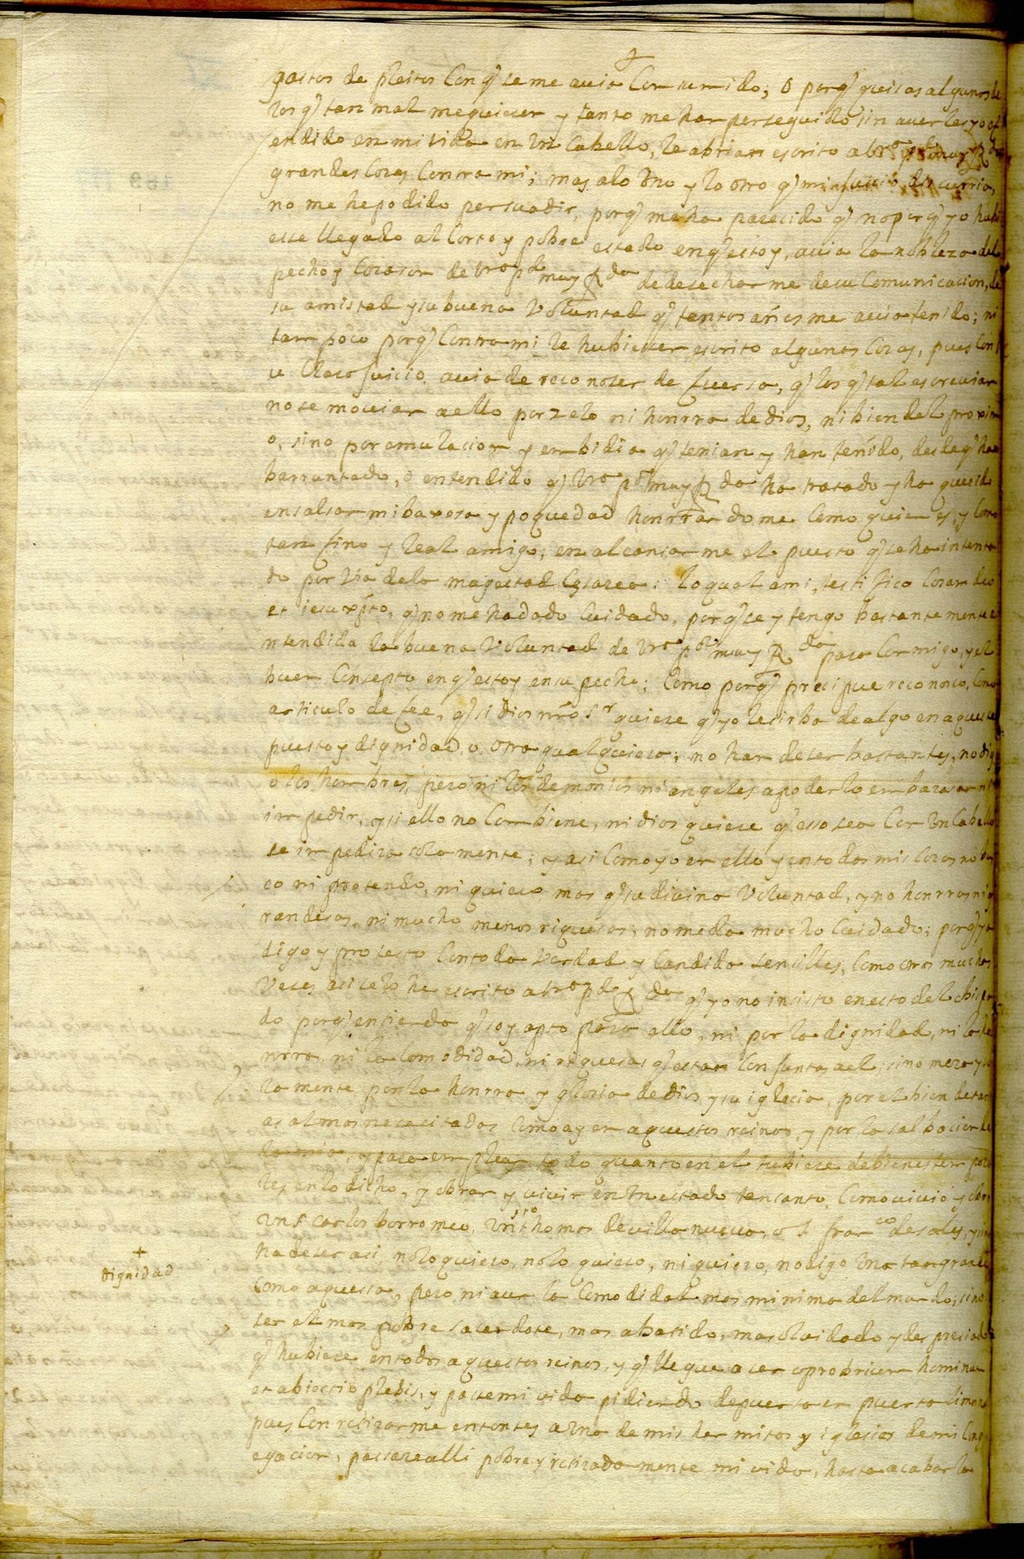 gastos de pleitos con q̃ se me auia consumido; o porq̃ quisas algunos de
los q̃ tan mal me quieren y tanto me han perseguido sin auerles yo of
endido en mi vida en vn cabello, le abrian escrito a
grandes cosas contra mi; mas a lo vno y lo otro q̃ mi juicio discurria,
no me he podido persuadir, porq̃ me ha parecido q̃ no porq̃ yo hubi
esse llegado al corto y pobre estado en q̃ estoy, auia la nobleza del
pecho y corason de vra pd muy Rda de desecharme de su comunicacion, de
su amistad y su buena voluntad q̃ tantos años me auia tenido; ni
tan poco porq̃ contra mi le hubiesen escrito algunas cosas, pues con s
u claro juicio auia de reconoser de fuersa, q̃ los q̃ tal escreuian
no se mouian a ello por zelo ni honrra de dios, ni bien del proxim
o, sino por emulacion y enbidia q̃ tenian y han tenido, desde q̃ han
barruntado, o entendido q̃ vra pd muy Rda ha tratado y ha querido
ensalsar mi baxesa y poquedad honrrandome como quien es, y como
tan fino y leal amigo, en alcansarme el puesto q̃ se ha intenta
do por via de la magestad Cesarea: lo qual a mi, testifico coram deo
et iesu xp̃to, q̃ no me ha dado cuidado, porq̃ se y tengo bastantemente e
ntendida la buena voluntad de vra pd muy Rda para conmigo, y el
buen consepto en q̃ estoy en su pecho; como porq̃ precipue reconosco, como
articulo de fée, q̃ si dios nr̃o Sr quiere q̃ yo le sirba de algo en aqueste
puesto y dignidad, o otra qualquiera; no han de ser bastantes, no dig
o los honbres, pero ni los demonios ni angeles a poderlo enbarasar ni
inpedir, y si ello no conbiene, ni dios quiere q̃ esso sea con vn cabello
se inpedira solamente; y asi como yo en ello y en todas mis cosas no des
eo ni pretendo, ni quiero mas q̃ su diuina voluntad, y no honrras ni g
randesas, ni mucho menos riquesas; no me da mucho cuidado; porq̃ yo
digo y protesto con toda verdad y candida sensilles, como otras muchas
veces asi se lo he escrito a vra pd Rda q̃ yo no insisto en esto del obispa
do porq̃ entienda q̃ soy apto para ello, ni por la dignidad, ni la ho
nrra, ni la comodidad, ni riquesas q̃ estan conjuntas a el; sino mera y so
lamente por la honrra y gloria de dios y su iglecia, por el bien de tan
as almas nececitadas como ay en aquestos reinos, y por la salbacion de
y para enplear todo quanto en el tubiere de bienes temporal
les en lo dicho, y obrar y viuir en vn estado tan santo, como viuio y obro
vn S. Carlos borromeo, vn sto thomas de villa nueua, o S. franco de sales, y si no
ha de ser asi, no lo quiero, no lo quiero, ni quiero, no digo vna tan grande
como aquesta, pero ni aun la comodidad mas minima del mundo; sino
ser el mas pobre sacerdote, mas abatido, mas oluidado y despreciado
q̃ hubiere en todos aquestos reinos, y q̃ llegue a ser oprobrium hominum
et abiectio plebis, y pase mi vida pidiendo de puerta en puerta limosna
pues con retirarme entonses a vna de mis hermitas y iglesias de mi cong
regacion, passare alli pobre y retiradamente mi vida, hasta acabarla
+
dignidad